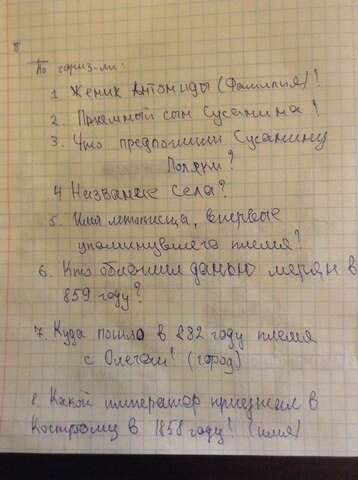 По гориз-ли:
1 Жених Антониды (Фамилия)!
2. Приемный сын Сусанина!
3. Что предложили Сусанину
Поляки?
4 Название села?
5. Имя летописца, впервые
упоминувшего племя?
6. Кто обложил данью мерян в
859 году?
7. Куда пошло в 882 году племя
с Олегом! (город)
8. Какой император приезжал в
Кострому в 1858 году! (имя)